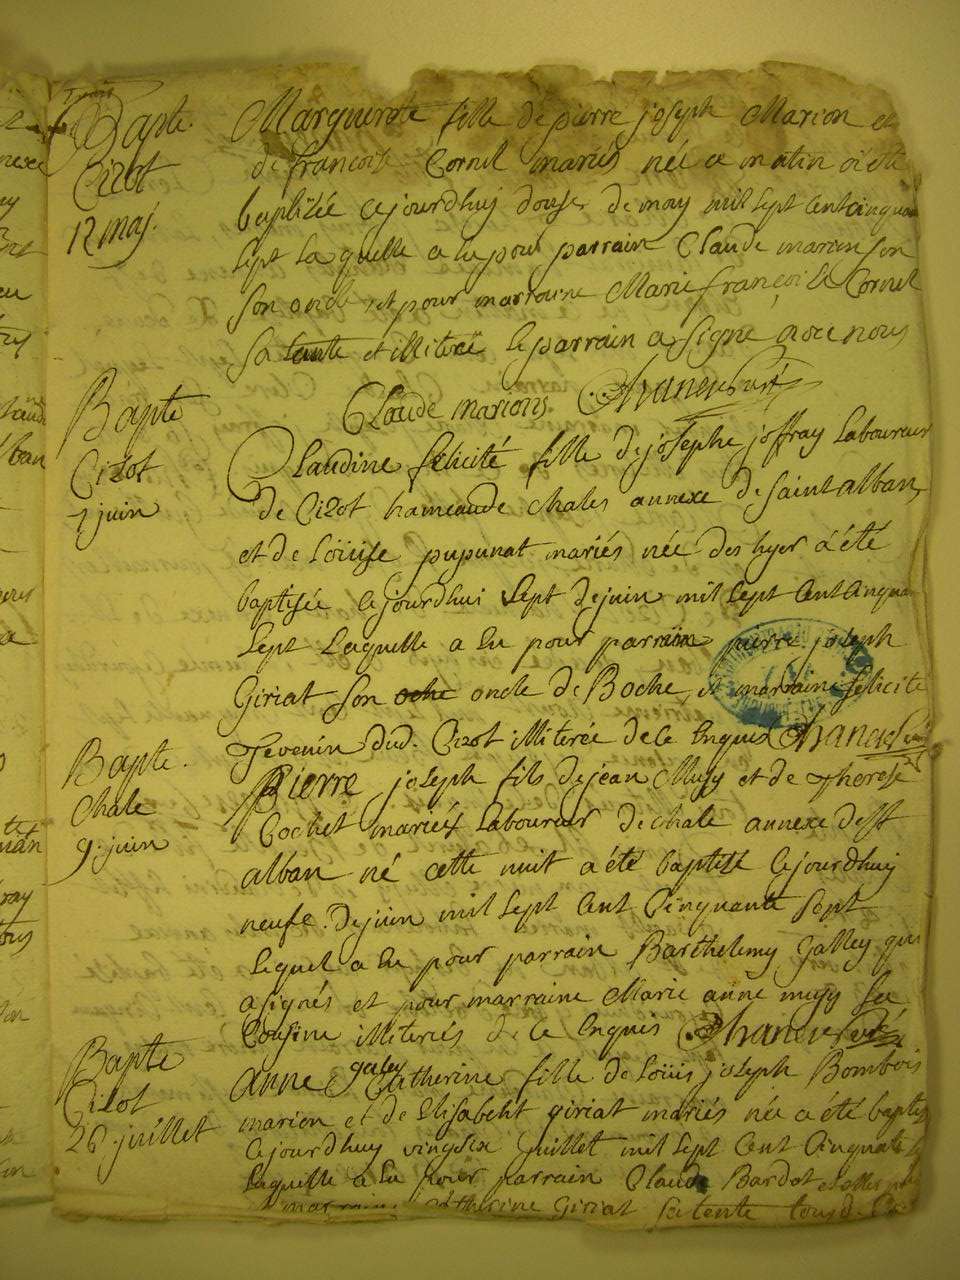 Bapte.
Cizot
12 maj.
Marguerote fille de pierre joseph Marion et
de francoise Cornil mariés née ce matin a été
baptizée cejourdhuj douse de may mil sept centcinquan
sept laquelle a eu pour parrain Claude marion son
son oncle, et pour marraine Marie françoise Cornil
sa tante et illiteré le parrain a signe avec nous
Claude marions Chanel Curé
Bapte
Cizot
7 juin
Claudine félicité fille de josephe joffray Laboureur
de Cizot hameaude chales annexe de saint alban
et de Loüise pupunat mariés née des hyer a été
baptisée cejourdhui sept dejuin mil sept centcinquan
sept Laquelle a eu pour parrain pierre joseph
Giriat son oche oncle de Boche, et marraine félicité
Tevenin dud. Cizot illiterée de ce Enquis
Bapte.
Chale
9. juin
Pierre joseph fils dejean Musy et de Therese
Cochet mariéz Laboureur de chale annexe de st
alban né cette nuit a été baptisé cejourdhuy
neufe. dejuin mil sept cent Cinquante sept
Lequel a eu pour parrain Barthelemy Galley qui
a signés et pour marraine Marie anne musy sa
Cousine illiterés de ce Enquis
Bapte
Cizot
26. juillet
anne Catherine fille de Loüis joseph Bombois
galey
marion et de Elisabeht giriat mariés née a été baptiz
cejourdhuy vingsix juillet mil sept cent Cinquate
Laquelle a eu pour parrain Claude Bardet
marraine catherine Giriat sa tente